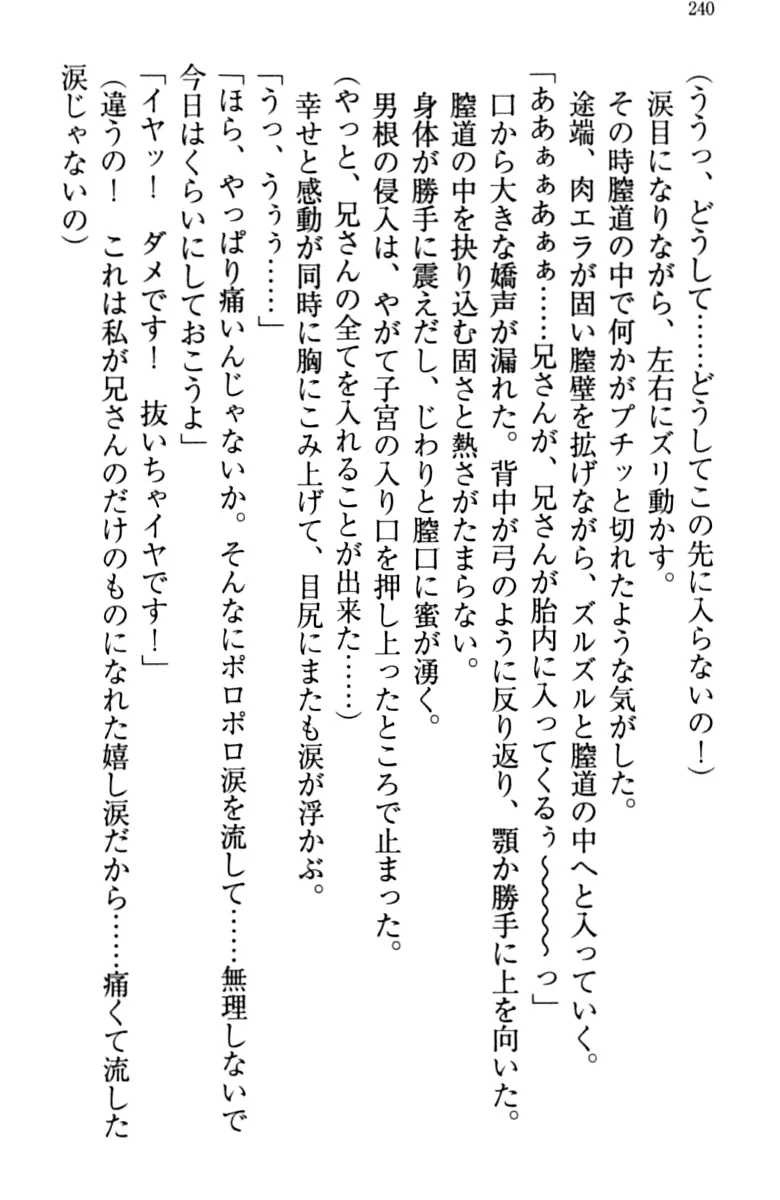 240
(ううっ、どうして……どうしてこの先に入らないの!)
涙目になりながら、左右にズリ動かす。
その時膣道の中で何かがプチッと切れたような気がした。
途端、肉エラが固い膣壁を拡げながら、ズルズルと膣道の中へと入っていく。
「ああぁぁあぁぁ……兄さんが、兄さんが胎内に入ってくるぅ〜〜〜〜っ」
口から大きな嬌声が漏れた。背中が弓のように反り返り、顎か勝手に上を向いた。
膣道の中を抉り込む固さと熱さがたまらない。
身体が勝手に震えだし、じわりと膣口に蜜が湧く。
男根の侵入は、やがて子宮の入り口を押し上ったところで止まった。
(やっと、兄さんの全てを入れることが出来た……)
幸せと感動が同時に胸にこみ上げて、目尻にまたも涙が浮かぶ。
「うっ、うぅぅ……」
「ほら、やっぱり痛いんじゃないか。そんなにポロポロ涙を流して……無理しないで
今日はくらいにしておこうよ」
「イヤッ! ダメです! 抜いちゃイヤです!」
(違うの! これは私が兄さんのだけのものになれた嬉し涙だから……痛くて流した
涙じゃないの)